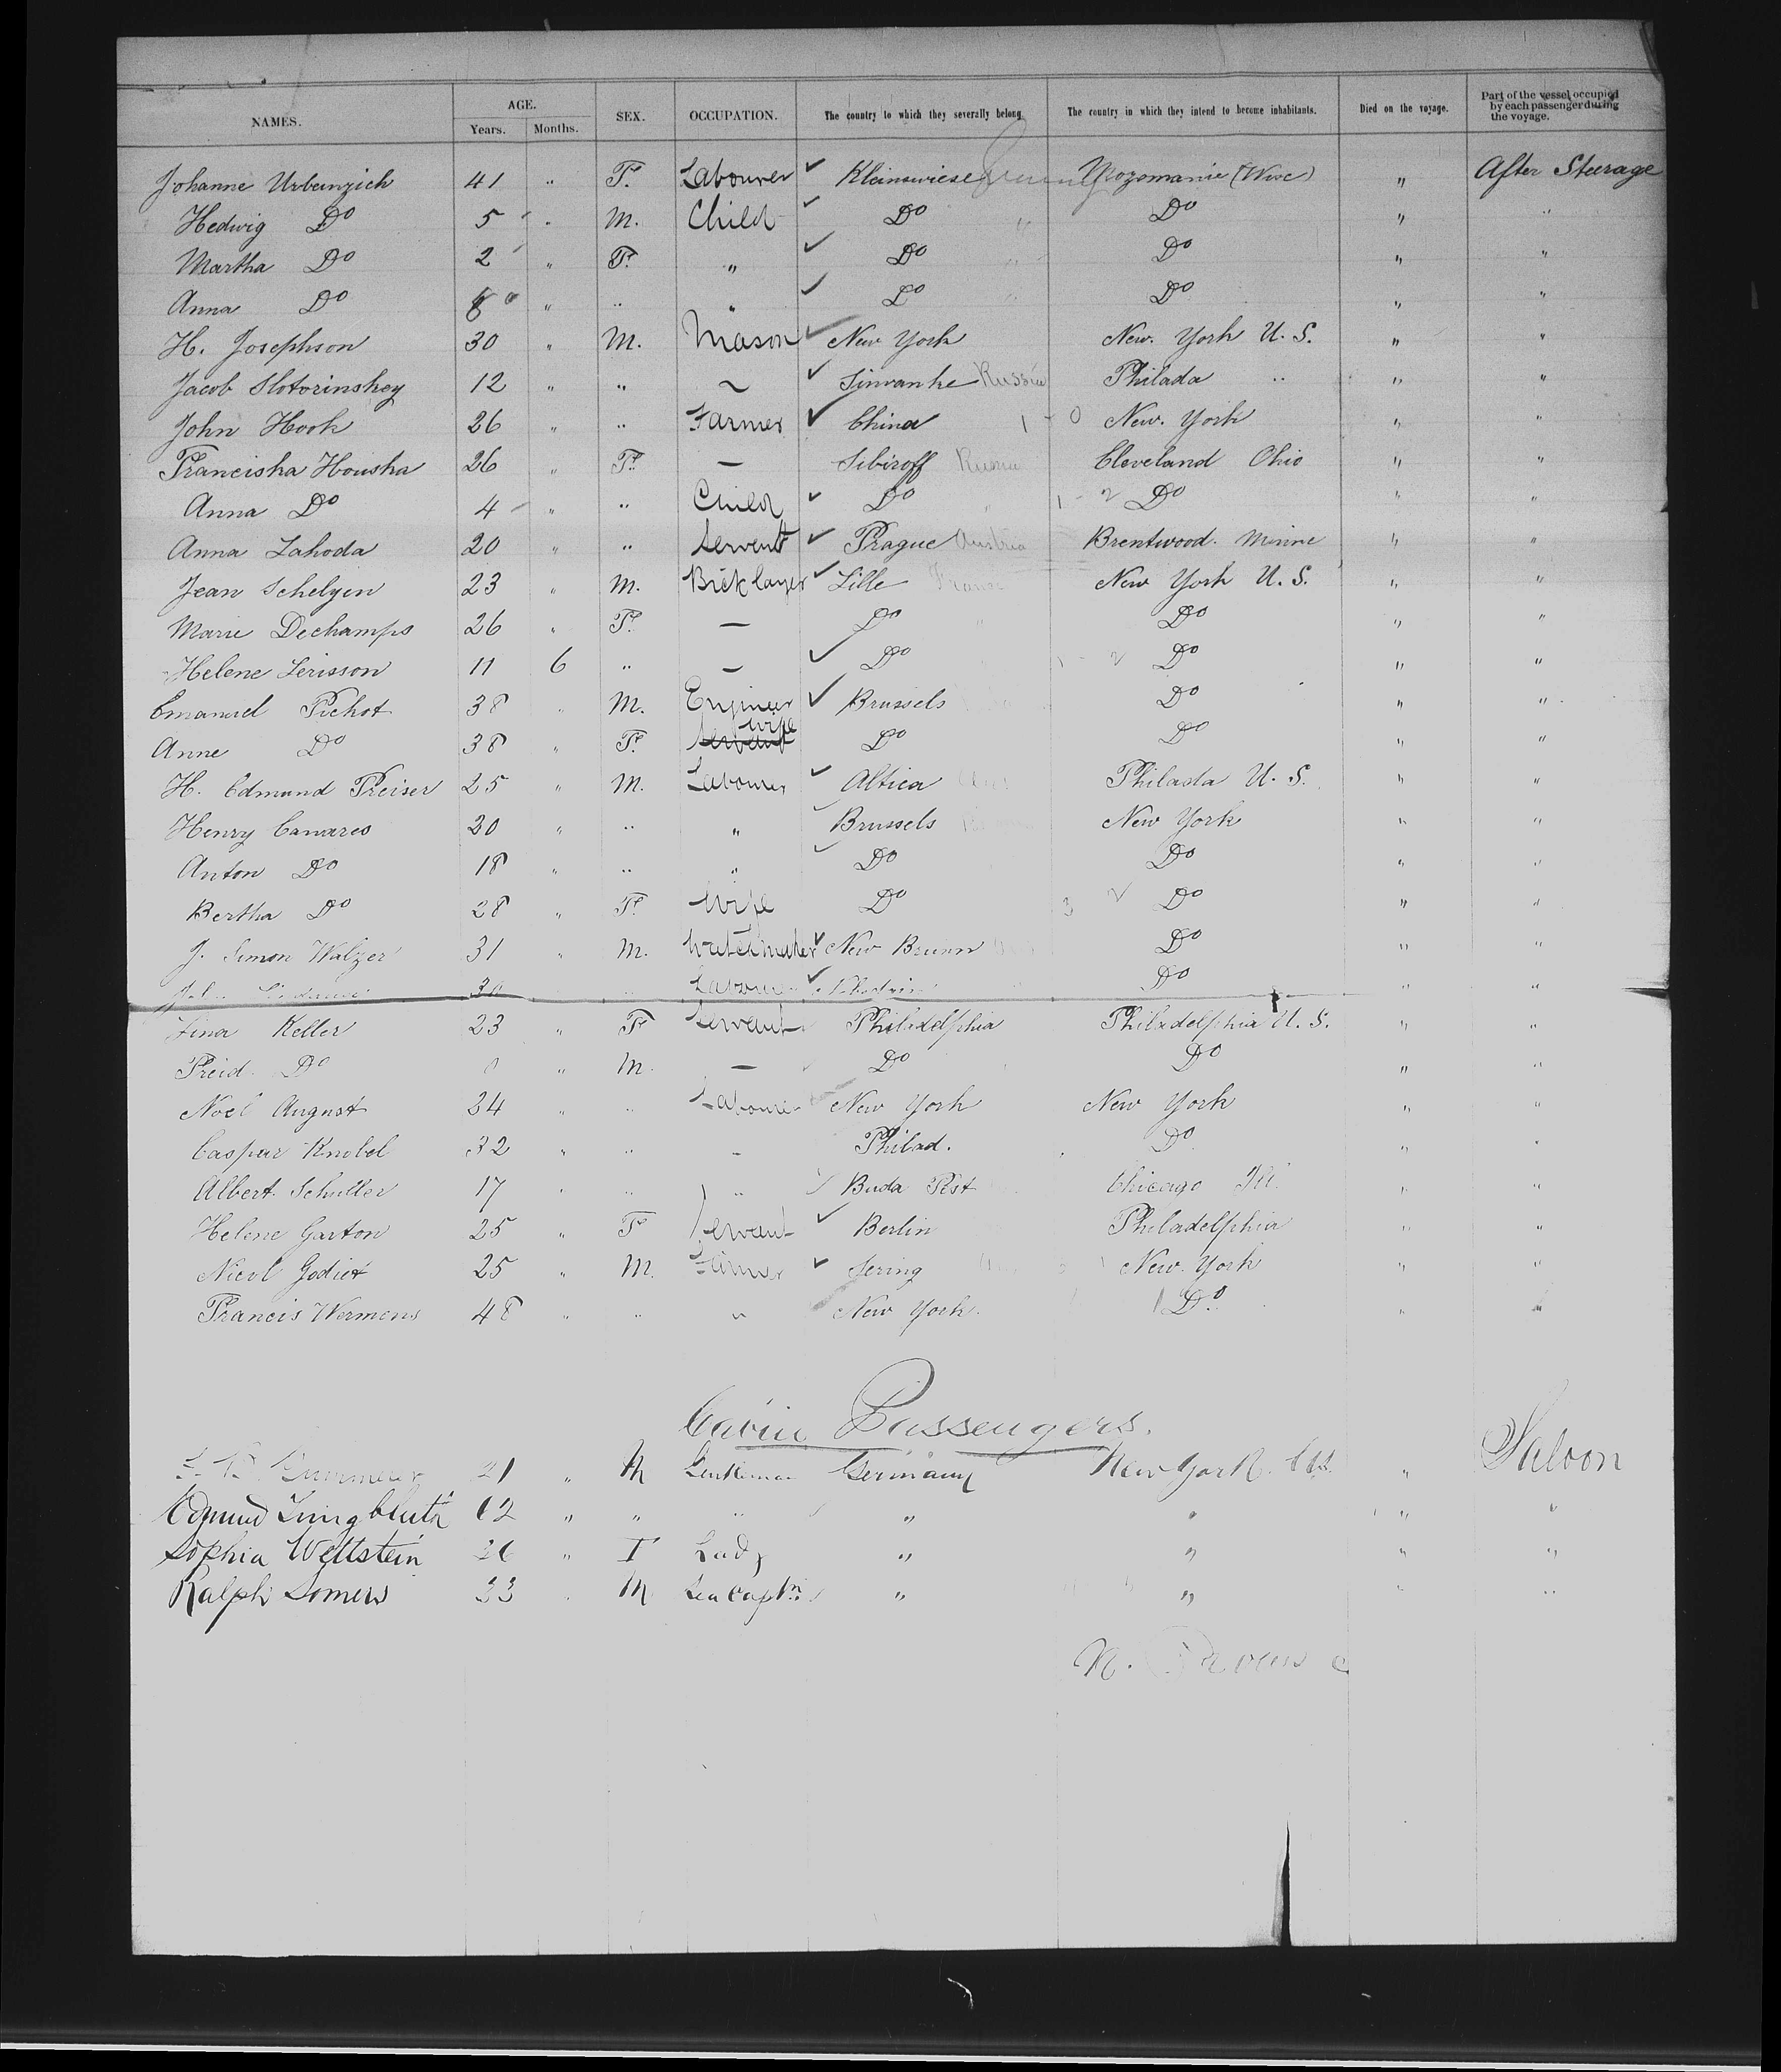 NAMES. AGE. SEX. OCCUPATION. The country to which they severally belong. The country in which they intend to become inhabitants. Died on the voyage. Part of the vessel occupied by each passenger during the voyage.
Years. Months.
Johanne Urbanzich 41 " F. Labourer ✓ Kleinswiese Mozomanie (Wisc) " After Steerage
Hedwig Do 5 " M. Child ✓ Do " Do " "
Martha Do 2 " F. " ✓ Do " Do " "
Anna Do " " " ✓ Do " Do " "
H. Josephson 30 " M. Mason ✓ New York New. York U. S. " "
Jacob Slotorinskey 12 " " ~ ✓ Sinvanke Russia Philada " " "
John Hook 26 " " Farmer ✓ China 1 - 0 New. York " "
Franciska Houska 26 " F. — Sibiroff Russia Cleveland Ohio " "
Anna Do 4 " " Child ✓ Do " 1 - 2 Do " "
Anna Lahoda 20 " " Servent ✓ Prague Austria Brentwood. Minne " "
Jean Schelyen 23 " M. Bricklayer ✓ Lille France New York U. S. " "
Marie Dechamps 26 " F. — Do " Do " "
Helene Serisson 11 6 " — ✓ Do 1 - 2 Do " "
Emanuel Pichot 38 " M. Engineer ✓ Brussels Do " "
Anne Do 38 " F. Servant Wife Do Do " "
H. Edmund Preiser 25 " M. Labourer ✓ Altica Philada U. S. " "
Henry Canares 20 " " " ✓ Brussels New York " "
Anton Do 18 " " " ✓ Do Do " "
Bertha Do 28 " F. Wife Do 3 2 Do " "
J. Simon Walzer 31 " M. Watchmaker ✓ New Brunn Do " "
30 Labourer ✓ Do " "
Lina Keller 23 " F Servant Philadelphia Philadelphia U. S. " "
Freid. Do " M. — Do Do " "
Noel August 24 " " Labourer New York New York " "
Caspar Knobel 32 " " " Philad. Do " "
Albert Schuller 17 " " " ✓ Buda Pest Chicago Ill. " "
Helene Garton 25 " F Servant ✓ Berlin Philadelphia " "
Nicol Godiet 25 " M. Farmer ✓ Sering New. York " "
Francis Wermens 48 " " " New York. Do " "
Cabin Passengers.
21 " M Gentleman Germany New York. U.S. " Saloon
Edmund Jungbluth 62 " " " " " " "
Sophia Wettstein 26 " F Lady " " " "
Ralph Somers 33 " M Sea Captn. " " " "